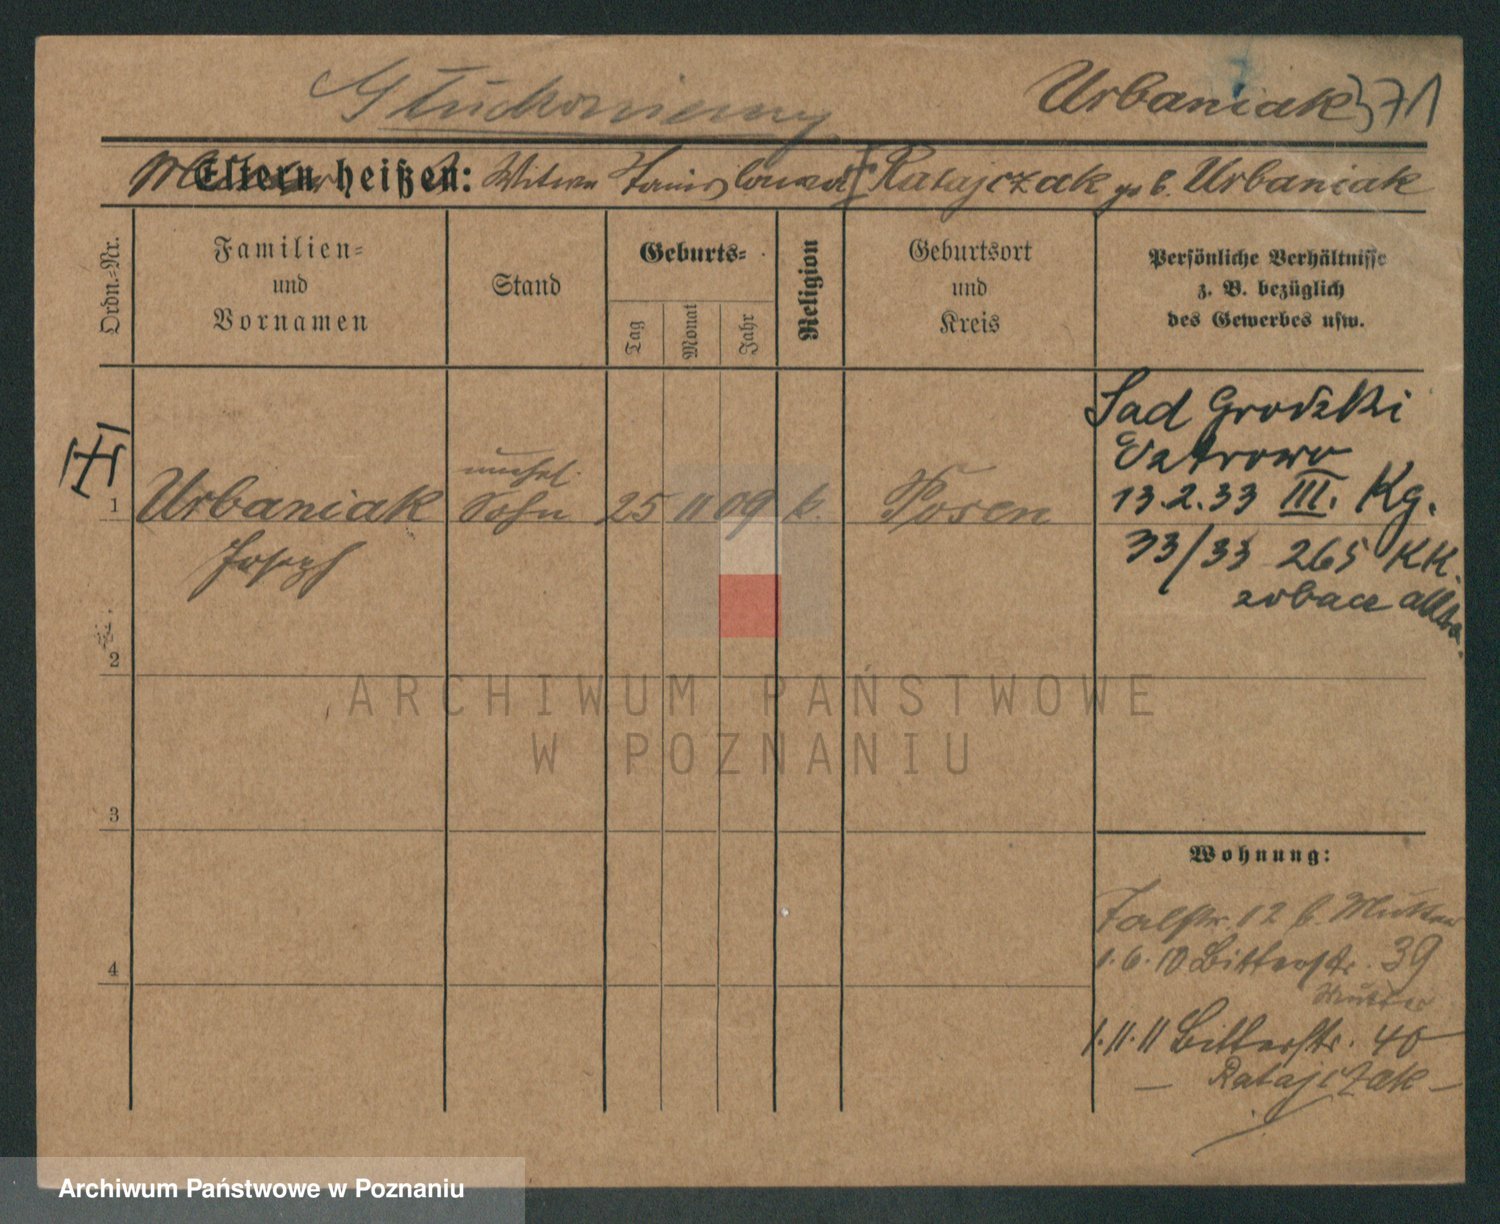 Głuchoniemy
Urbaniak 371
Eltern heißen: Witwe Stanislawa Ratajczak geb. Urbaniak
Ordn.=Nr.
Familien=
und
Vornamen
Stand
Geburts=
Tag
Monat
Jahr
Religion
Geburtsort
und
Kreis
Persönliche Verhältnisse
z. B. bezüglich
des Gewerbes usw.
Sad Grodzki
Ostrowo
13.2.33 III. Kg.
33/33 265 KK.
zobacz akta.
1
Urbaniak
Joseph
unehel.
Sohn
25
11
09
k.
Posen
2
3
4
Wohnung:
Talstr. 12 b. Mutter
1.6.10 Bitterstr. 39
Mutter
1.11.11 Bitterstr. 40
— Ratajczak —
ARCHIWUM PAŃSTWOWE
W POZNANIU
Archiwum Państwowe w Poznaniu